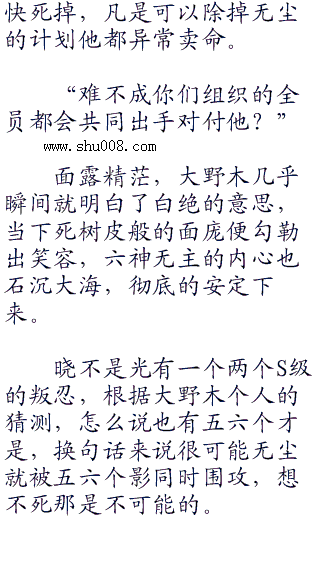 快死掉，凡是可以除掉无尘
的计划他都异常卖命。
“难不成你们组织的全
员都会共同出手对付他？”
www.shu008.com
面露精茫，大野木几乎
瞬间就明白了白绝的意思，
当下死树皮般的面庞便勾勒
出笑容，六神无主的内心也
石沉大海，彻底的安定下
来。
晓不是光有一个两个S级
的叛忍，根据大野木个人的
猜测，怎么说也有五六个才
是，换句话来说很可能无尘
就被五六个影同时围攻，想
不死那是不可能的。